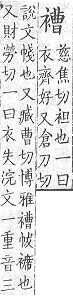 褿
慈焦切袒也一曰
衣齊好又倉刀切
說文帴也又臧曹切博雅褿帗褯也
又財勞切一曰衣失浣文一重音三